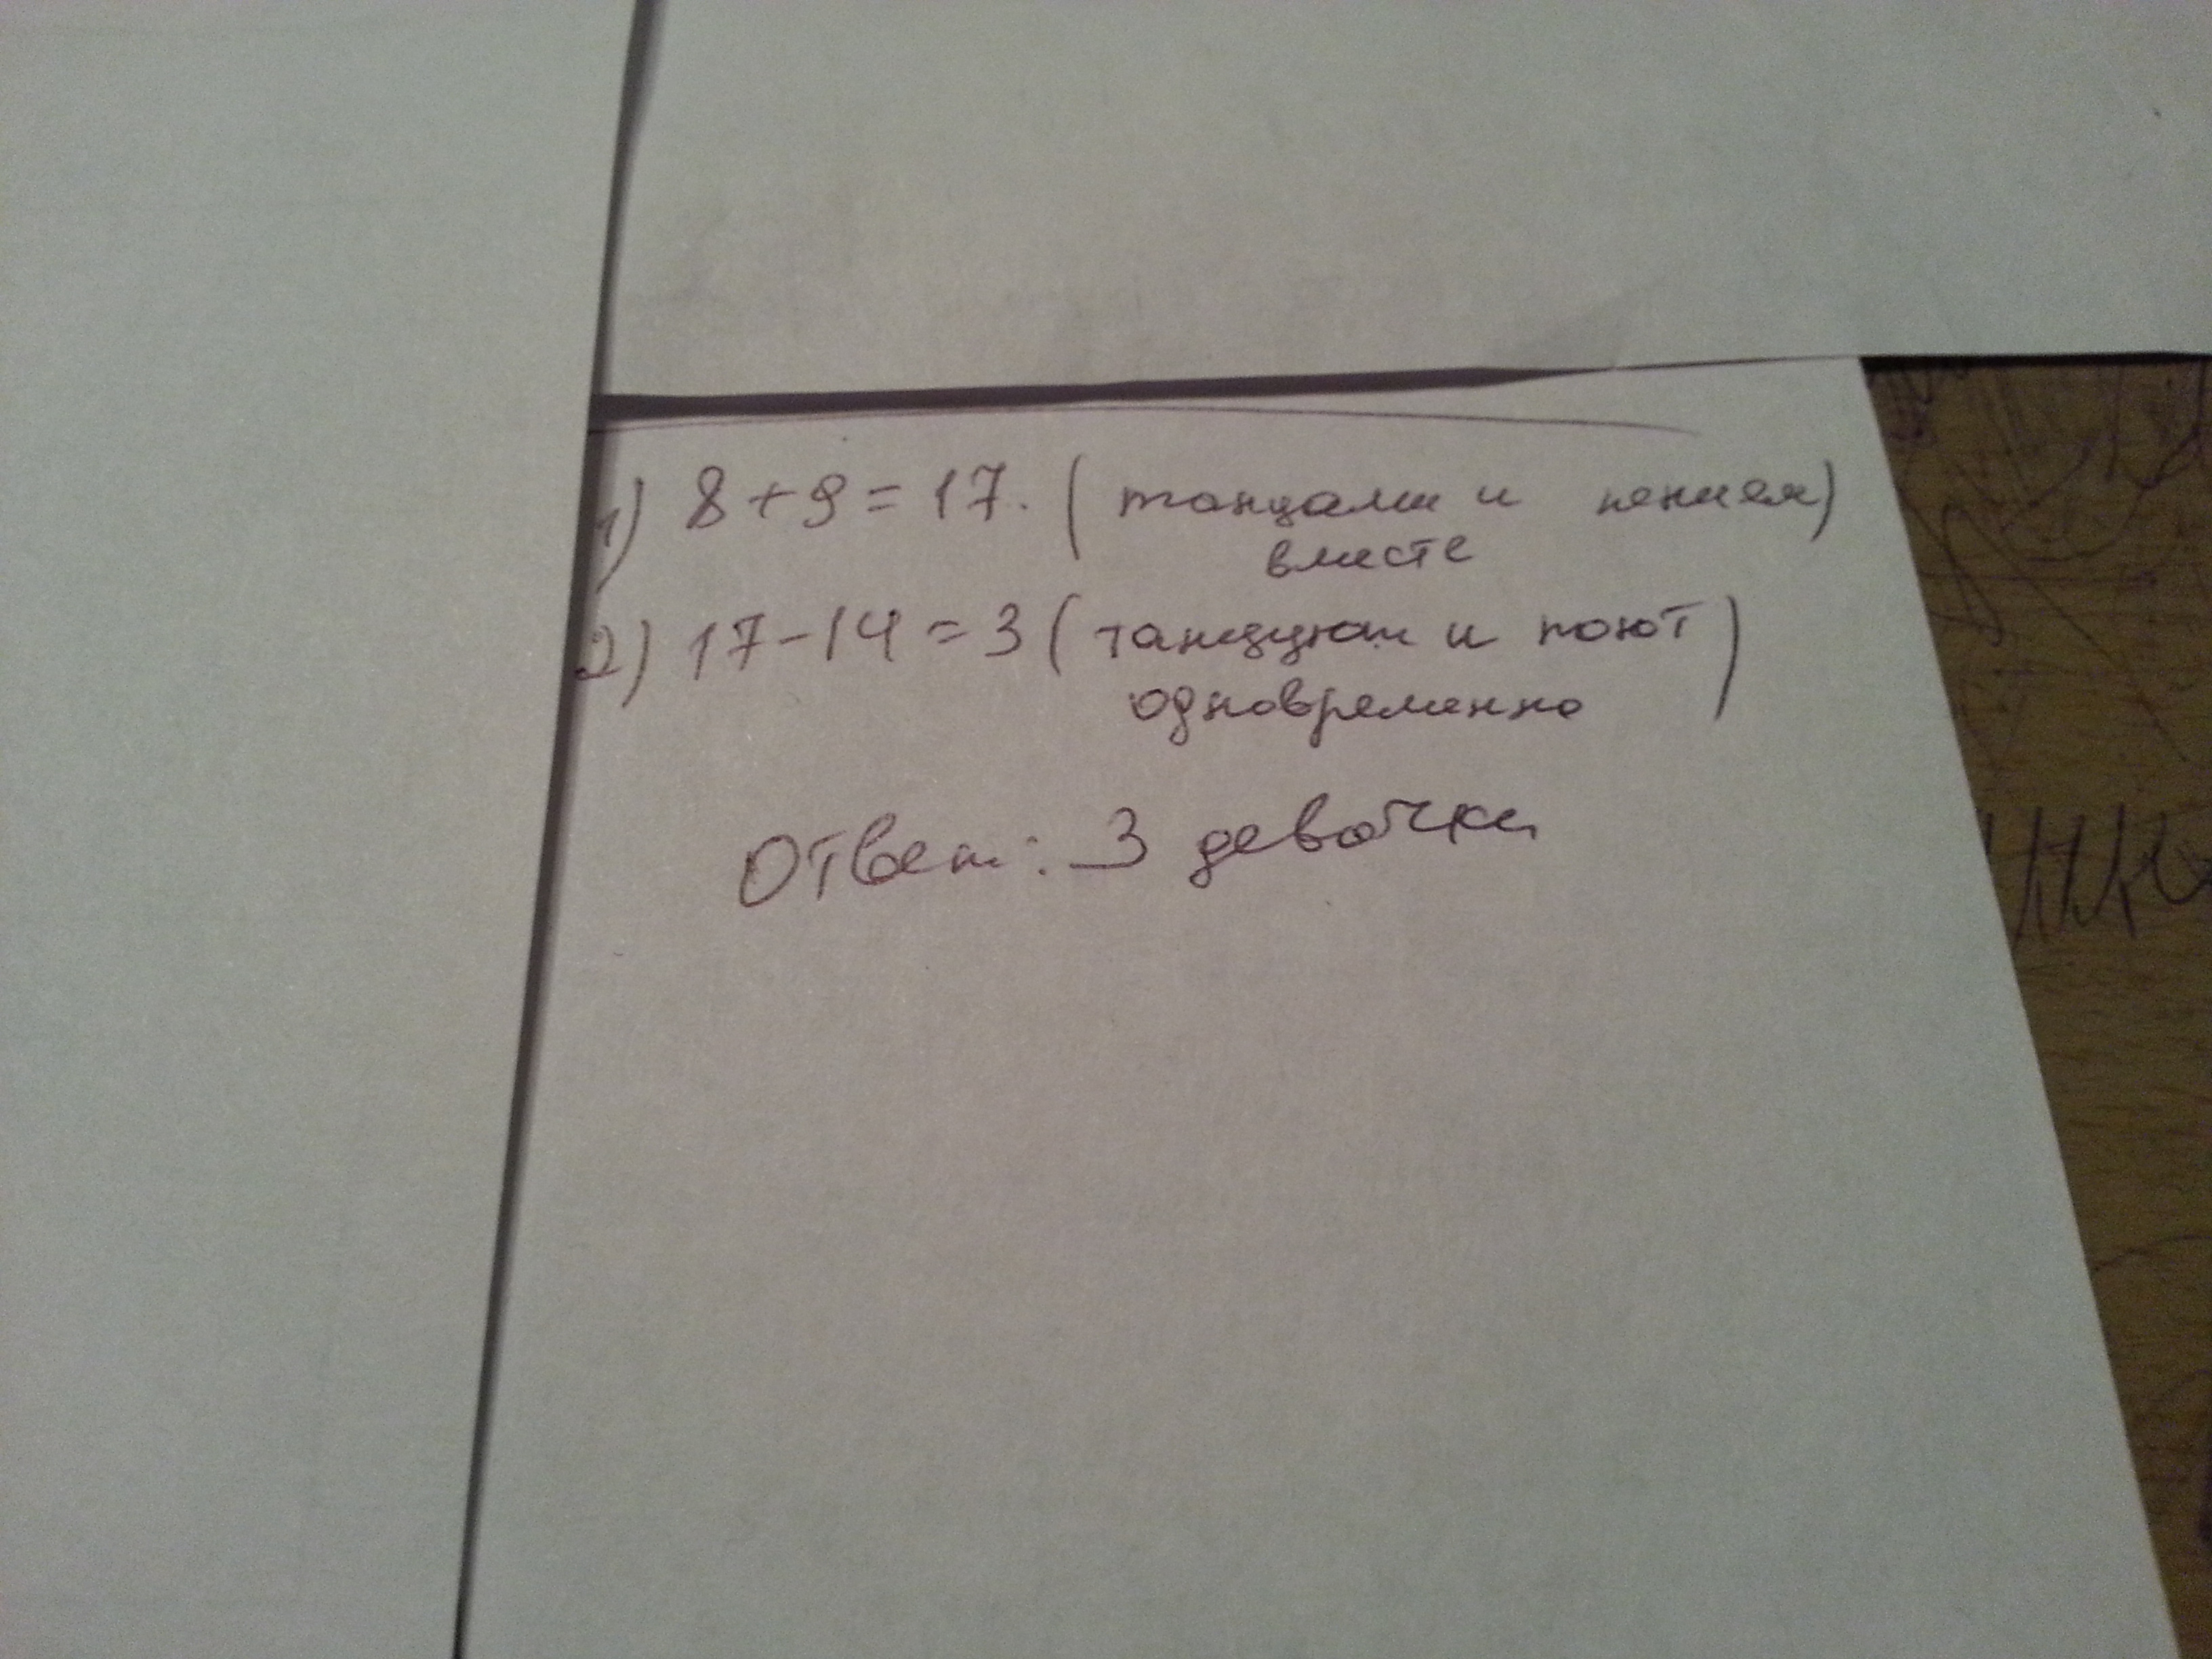 1) 8+9=17. (танцами и пением)
вместе
2) 17-14=3 (танцуют и поют)
одновременно
Ответ: 3 девочки